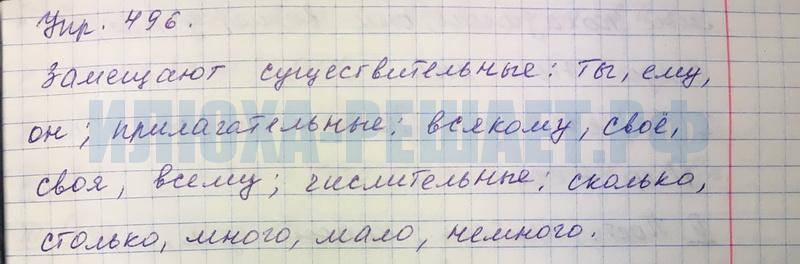 Упр. 496.
Замещают существительные: ты, ему,
он; прилагательные: всякому, своё,
ИЛЮХА-РЕШАЕТ.РФ
своя, всему; числительные: сколько,
столько, много, мало, немного.